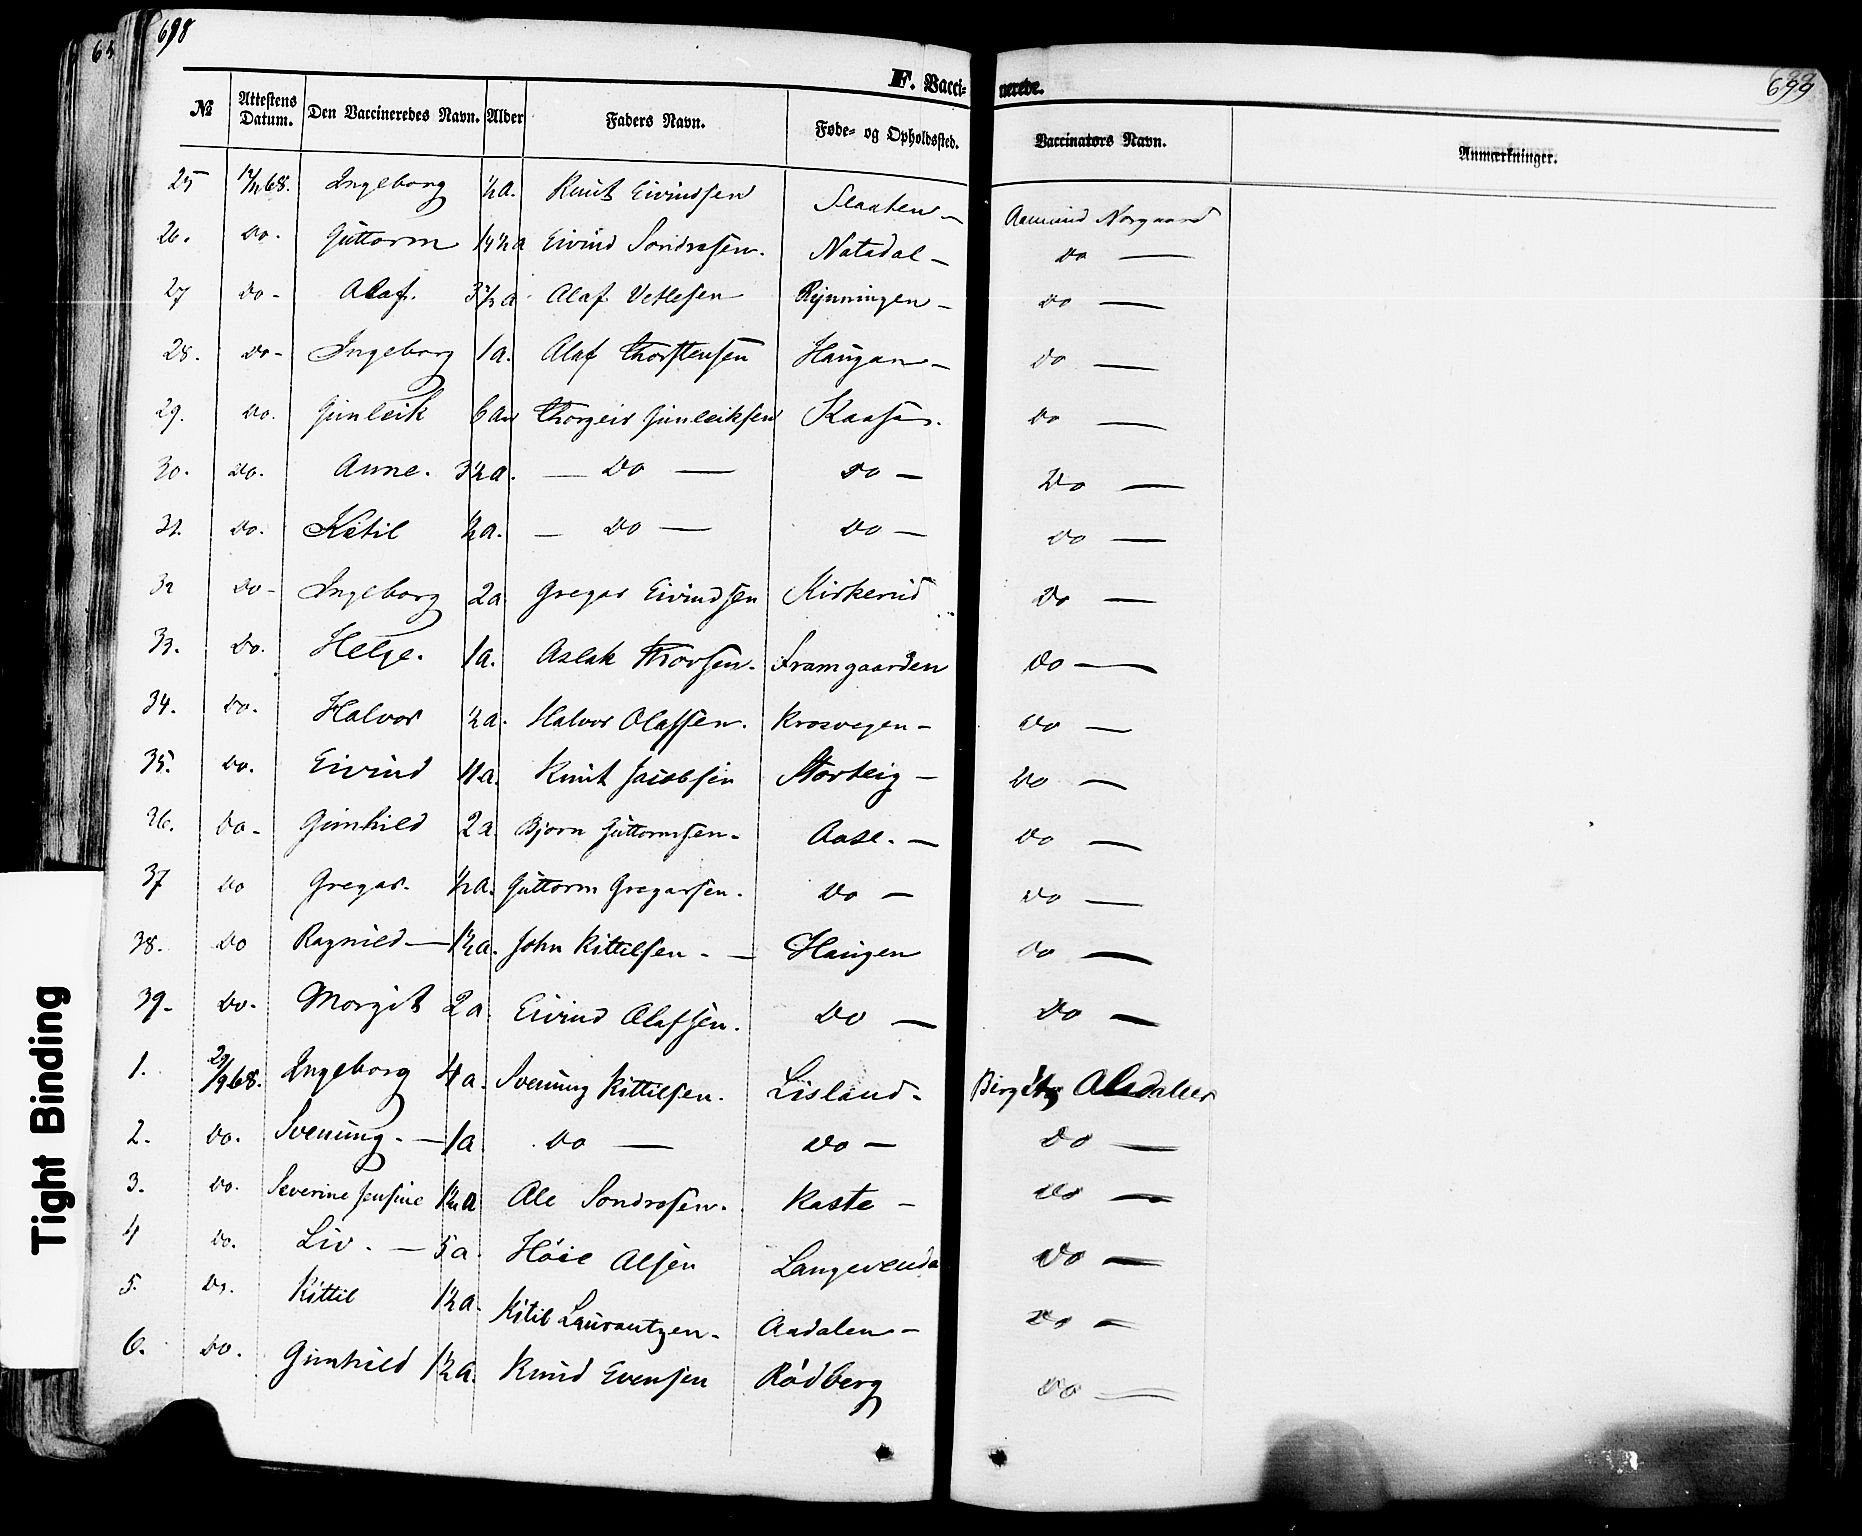 698
699
F. Vaccinerede.
№ Attestens Datum. Den Vaccineredes Navn. Alder Faders Navn. Føde- og Opholdssted. Vaccinators Navn. Anmærkninger.
25 68. Ingeborg ½a. Knut Eivindsen Slaaten - Aamund Norgaard
26. Do. Guttorm 1½a Eivind Sondresen. Natadal - Do —
27 Do - Olaf. 3½a. Olaf Vetlesen Rynningen - Do —
28. Do - Ingeborg 1a. Olaf Thorstensen Haugan - Do —
29. Do. Gunleik 6 aar Thorgeir Gunleiksen Kaasa. Do —
30. Do. Anne. 3½a. — Do — Do — Do —
31. Do. Ketil ½a. — Do — Do — Do —
32 Do - Ingeborg 2a Gregar Eivindsen Kirkerud Do —
33. Do. Helge. 1a. Aslak Thorsen. Framgaarden Do —
34. Do. Halvor ½a. Halvor Olafsen. Krosvegen - Do —
35. Do. Eivind 4a. Knut Jacobsen Storteig - Do —
36. Do - Gunhild 2a Bjorn Guttormsen - Aase. — Do —
37 Do Gregar. ½a. Guttorm Gregarsen. Do — Do —
38. Do Ragnild — 1½a. John Kittilsen - — Haugen Do —
39. Do. Morgit 2a. Eivind Olafsen. Do — Do —
1. 29/9 68. Ingeborg 4a. Svenung Kittilsen. Lisland - Birgit Aasdalen
2. Do. Svenung. — 1a Do — Do — Do —
3. Do. Severine Jensine 1½a Ole Sondresen. Kaste - Do —
4 Do. Liv. — 5a. Høie Olsen Langevenda Do —
5. Do. Kittil 1½a. Kitil Laurantzen - Aadalen - Do —
6. Do. Gunhild 1½a. Knud Evensen Rødberg Do —
Tight Binding